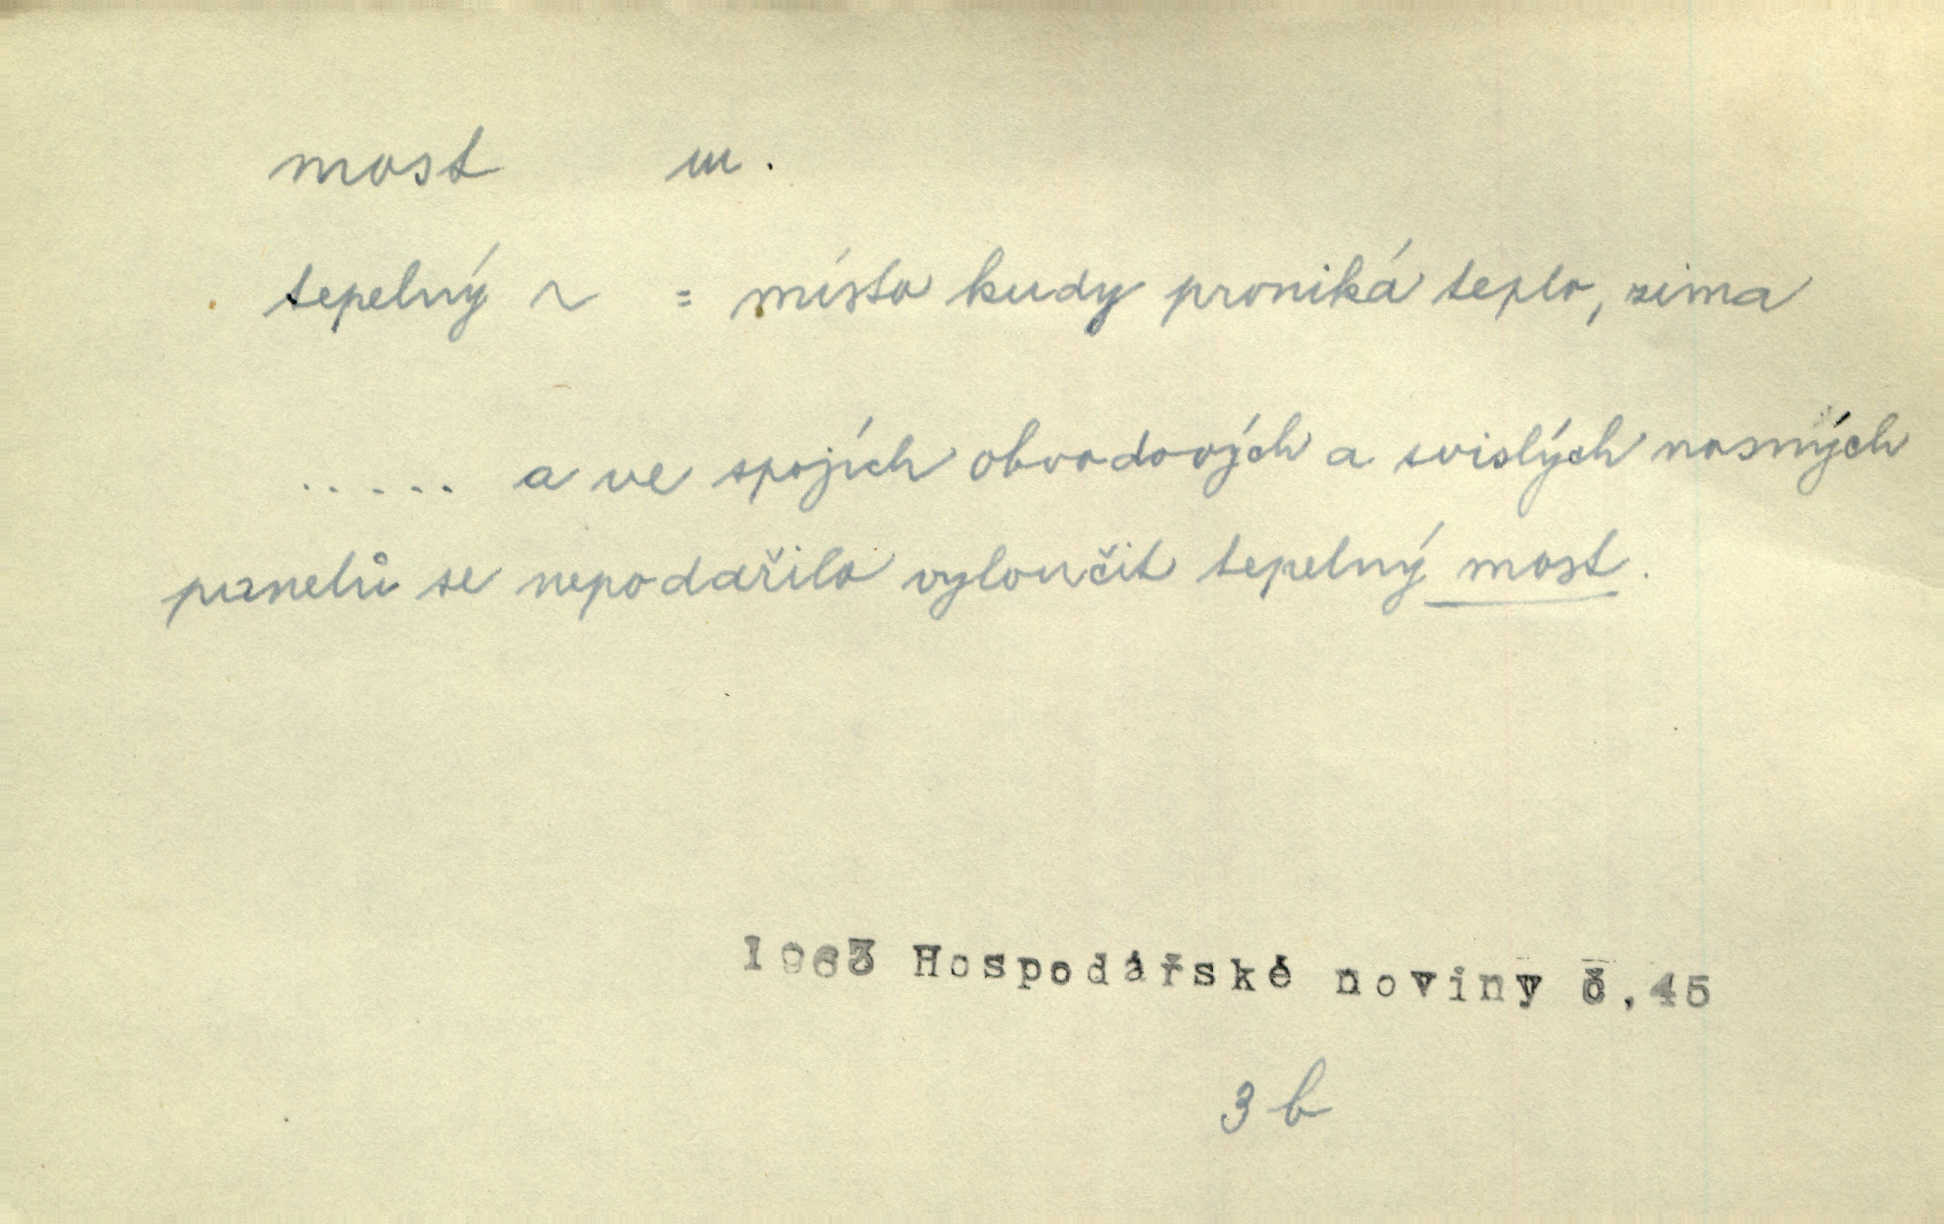 most m.
tepelný ~ = místo kudy proniká teplo, zima
..... a ve spojích obvodových a svislých nosných
panelů se nepodařilo vyloučit tepelný most.
1963 Hospodářské noviny č.45
3 b